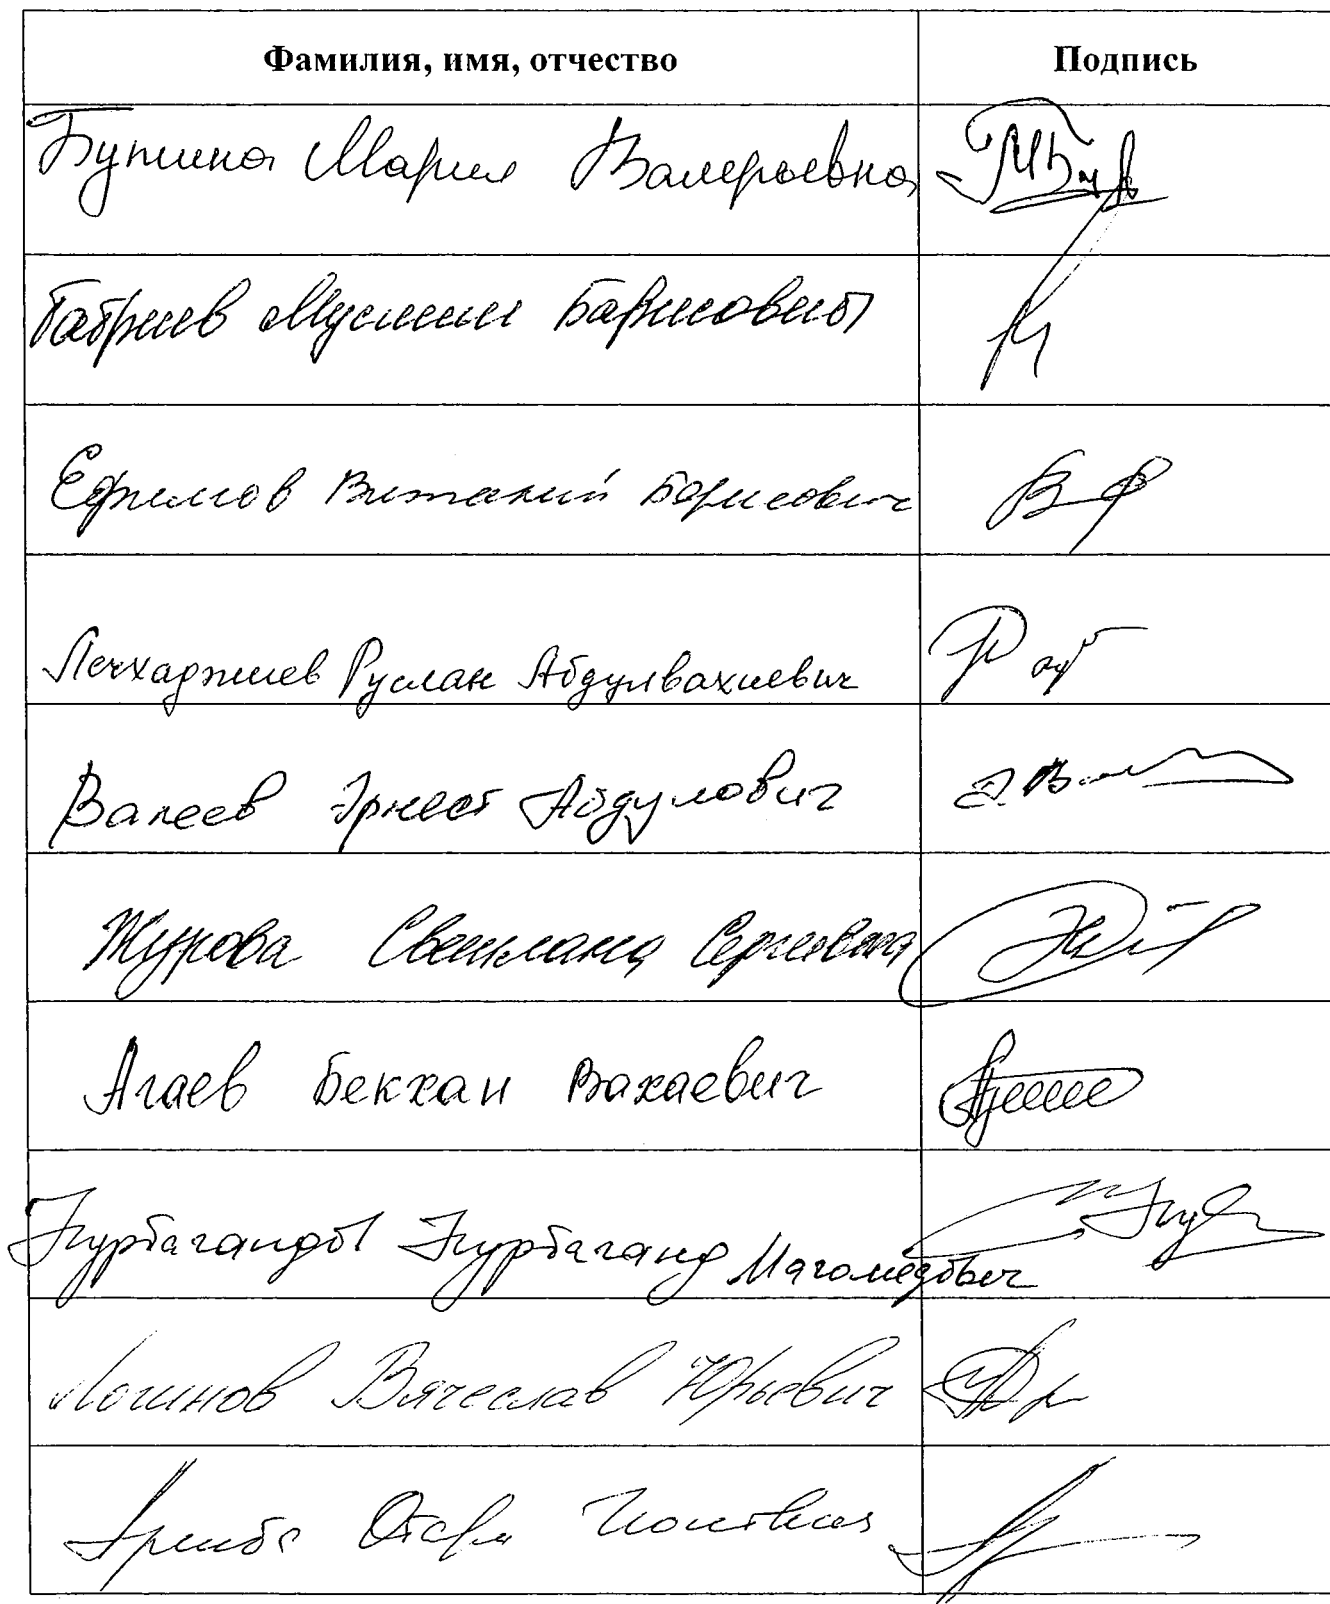 Фамилия, имя, отчество Подпись
Бутина Мария Валерьевна
Габриев Муслим Баризович
Ефимов Виталий Борисович
Лечхаджиев Руслан Абдулвахиевич
Валеев Эрнест Абдулович
Журова Светлана Сергеевна
Агаев Бекхан Вахаевич
Курбагандов Курбаганд Магомедович
Логинов Вячеслав Юрьевич
Аршба Отари Ионович